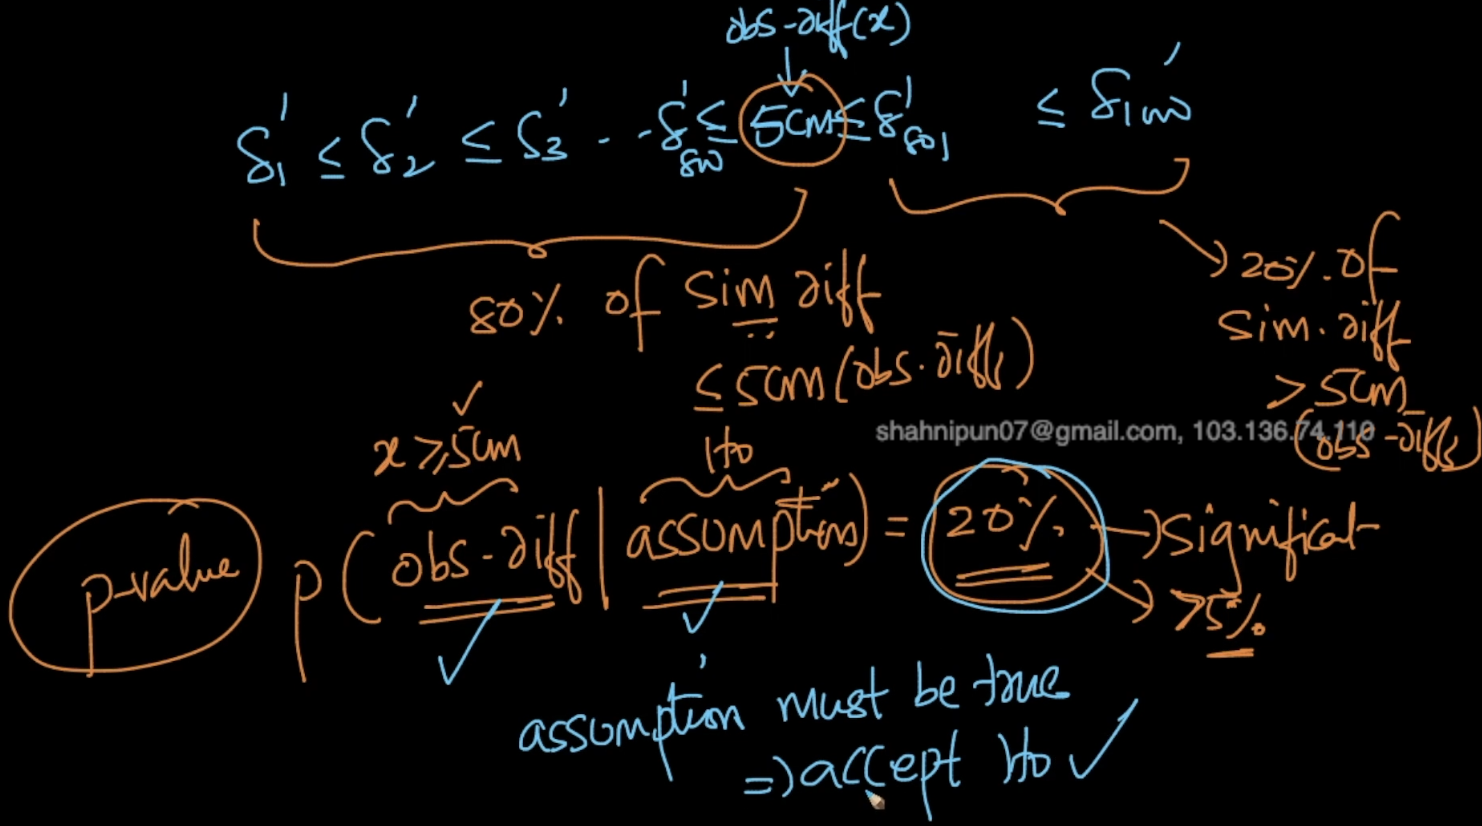 obs-diff(x)
δ'₁ ≤ δ'₂ ≤ δ'₃ . . . δ'₈₀₀ ≤ 5cm ≤ δ'₈₀₁ ≤ δ'₁₀₀₀
80% of sim diff
≤ 5cm (obs.diff)
20%. of
sim. diff
> 5cm
(obs-diff)
shahnipun07@gmail.com, 103.136.74.110
x ≥ 5cm
H₀
p-value
p(obs-diff | assumption) = 20% → significant
→ >5%.
assumption must be true
=> accept H₀ ✓